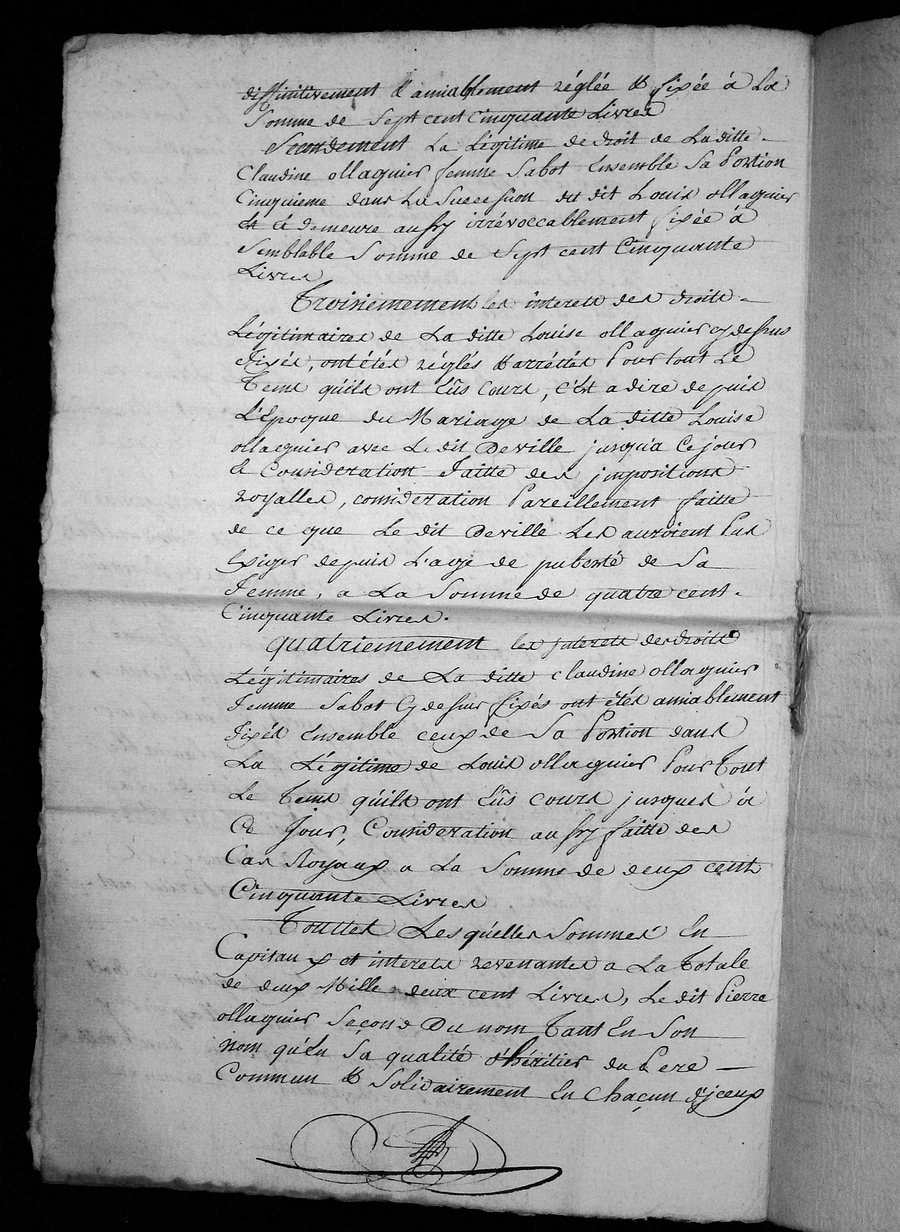 diffinitivement & amiablement réglée & fixée à La
Somme de Sept cent cinquante Livres
Secondement La Légitime de droit de Laditte
Claudine ollagnier femme Sabot Ensemble Sa Portion
Cinquieme dans La Succession du dit Louis ollagnier
Et demeure aussy irrévoccablement fixée à
Semblable Somme de Sept cent Cinquante
Livres
Troisiemement les interets des droits
Légitimaires de La ditte Louise ollagnier cy dessus
fixés, ont étés réglés & arrêttés Pour tout Le
Tems qu'ils ont Eûs cours, c'est a dire depuis
L'Epoque du Mariage de La ditte Louise
ollagnier avec Le dit Deville jusqu'a ce jour
& Considération faitte des jmpositions
royalles, considération Pareillement faitte
de ce que Le dit Deville Les auroient Pus
Exiger depuis L'age de puberté de Sa
femme, a La Somme de quatre cent
Cinquante Livres.
Quatriemement les jnterets des droits
Légitimaires de La ditte Claudine ollagnier
femme Sabot Cy dessus fixés ont étés amiablement
fixés Ensemble ceux de Sa Portion dans
La Légitime de Louis ollagnier Pour Tout
Le Tems qu'ils ont Eûs cours jusques à
Ce Jour, Considération aussy faitte des
Cas Royaux a La Somme de deux cent
Cinquante Livres
Touttes Lesquelles Sommes En
Capitaux et interets revenantes a La Totale
de deux Mille deux cent Livres, Le dit Pierre
ollagnier Second Du nom Tant En Son
nom qu'En Sa qualité d'héritier du Pere
Commun & Solidairement En Chaçun d'jceux